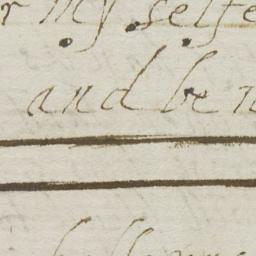 r my selfe
and be n